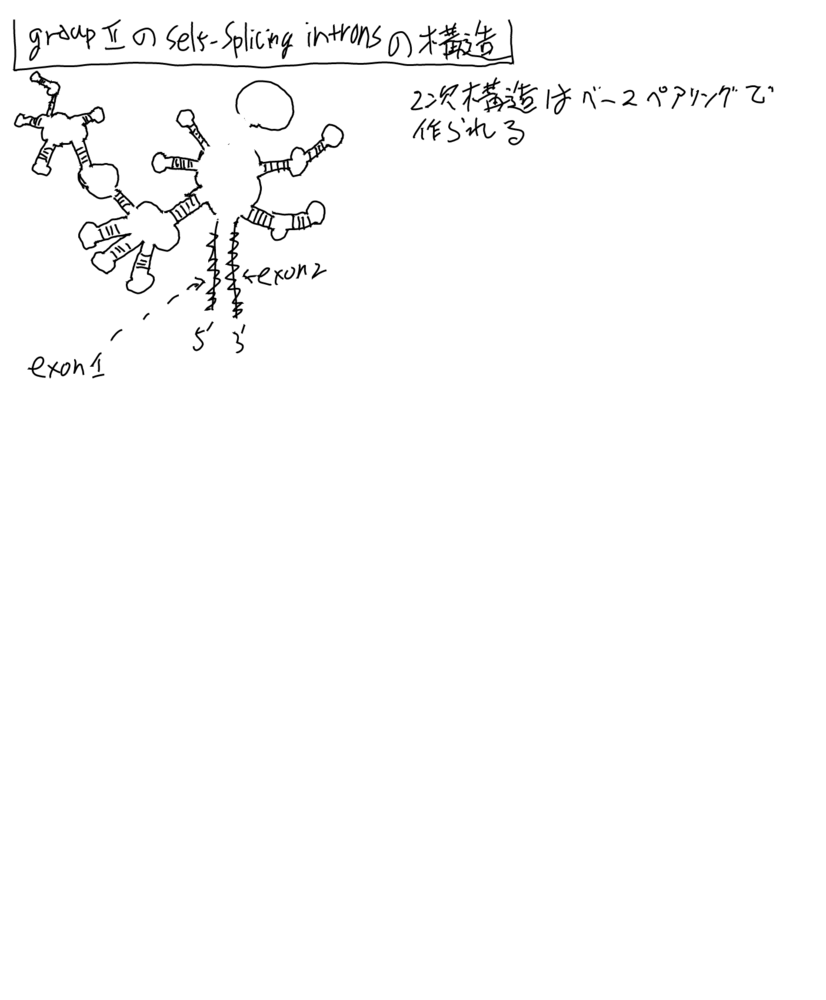 group Ⅱ の self-splicing introns の構造
2次構造はベースペアリングで
作られる
exon2
5' 3'
exon1